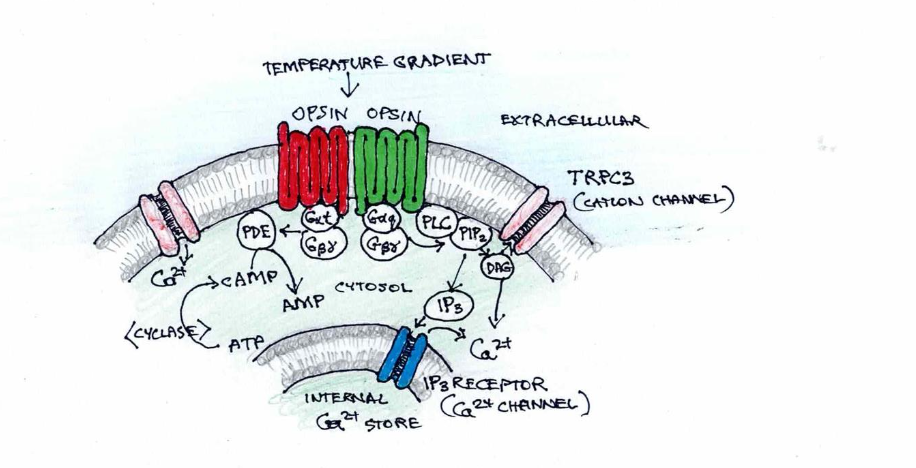 TEMPERATURE GRADIENT
OPSIN OPSIN
EXTRACELLULAR
TRPC3
(CATION CHANNEL)
Gαt
Gαq
PLC
PDE
Gβγ
Gβγ
PIP₂
DAG
Ca²⁺
cAMP
CYTOSOL
AMP
IP₃
<CYCLASE>
ATP
Ca²⁺
IP₃ RECEPTOR
(Ca²⁺ CHANNEL)
INTERNAL
Ca²⁺ STORE